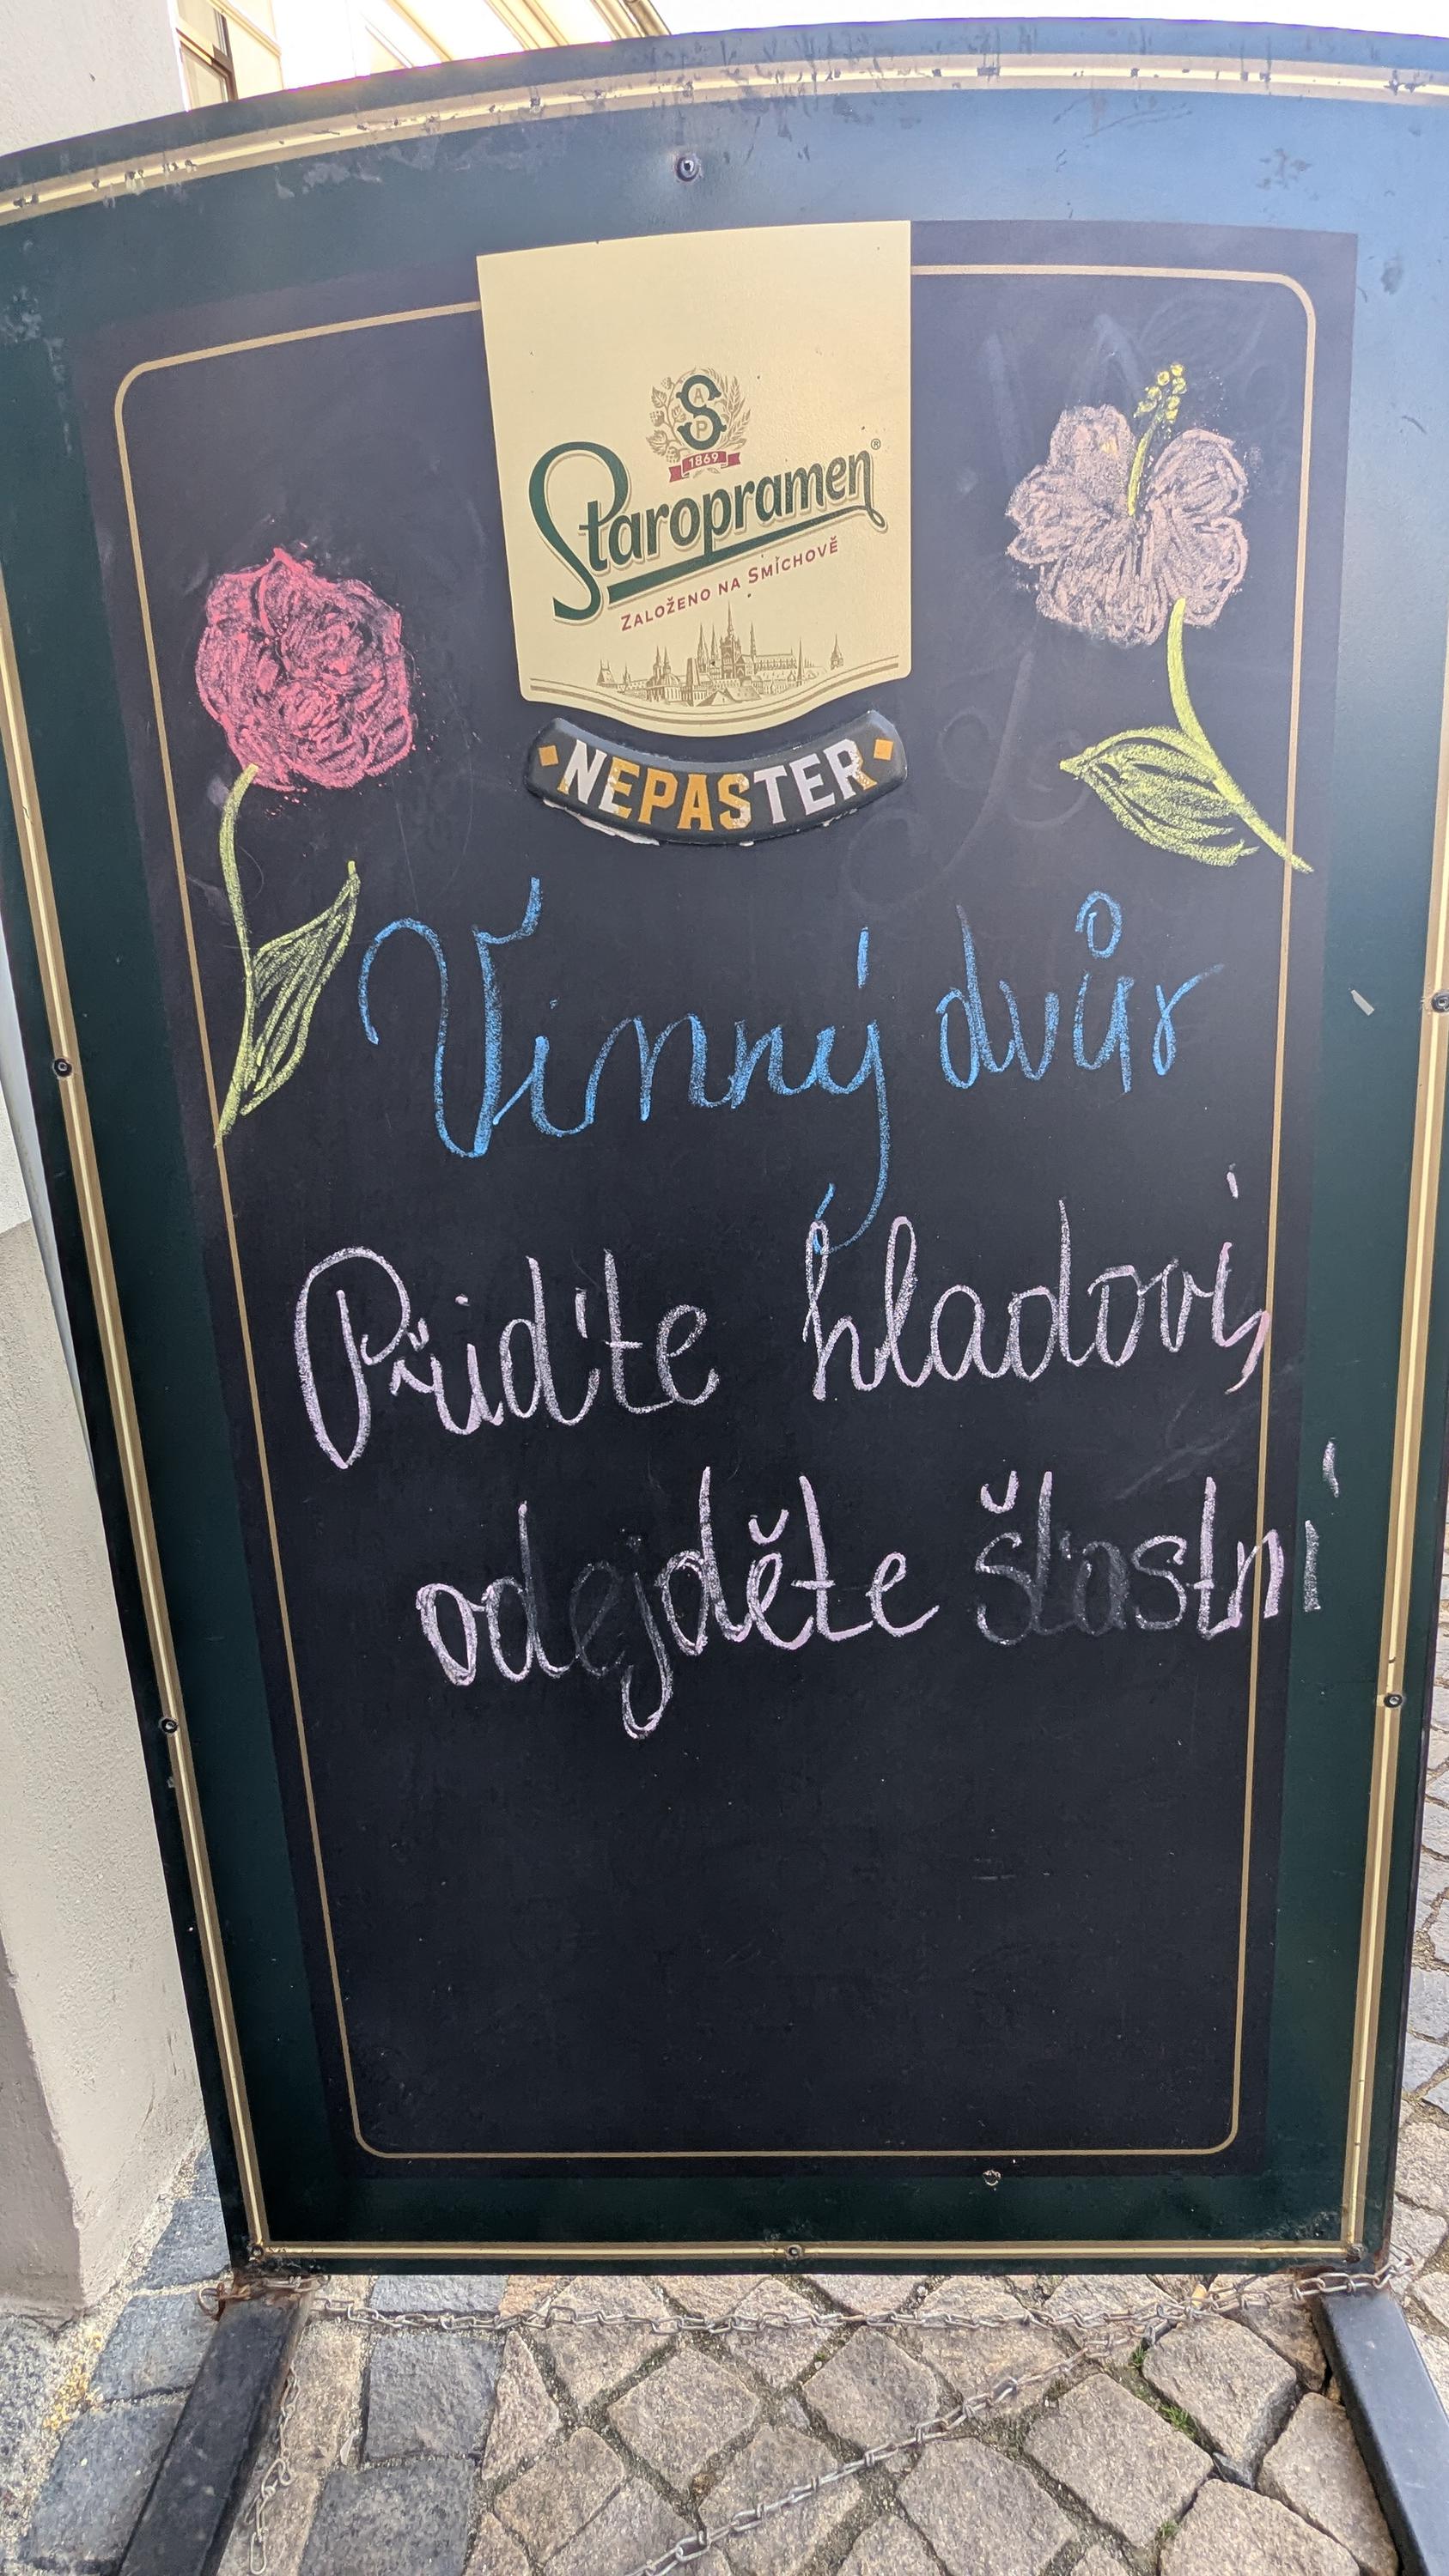 SAP
1869
Staropramen®
ZALOŽENO NA SMÍCHOVĚ
NEPASTER
Vinný dvůr
Přiďte hladoví,
odejděte šťastní